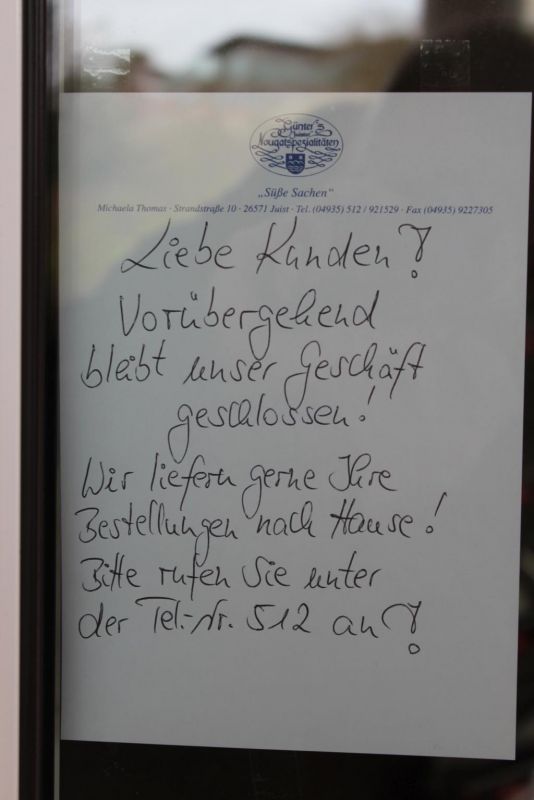 Günter's
Nougatspezialitäten
„Süße Sachen“
Michaela Thomas · Strandstraße 10 · 26571 Juist · Tel. (04935) 512 / 921529 · Fax (04935) 9227305
Liebe Kunden!
Vorübergehend
bleibt unser Geschäft
geschlossen!
Wir liefern gerne Ihre
Bestellungen nach Hause!
Bitte rufen Sie unter
der Tel.-Nr. 512 an!